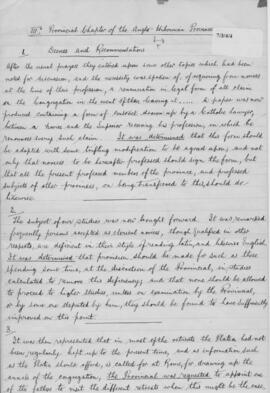 IIIrd Provincial Chapter of the Anglo-Hibernian Province
1. Decrees and Recommendations
After the usual prayers they entered upon some other topics which had been
noted for discussion, and the necessity was spoken of, of requiring from novices
at the time of their profession, a renunciation in legal form of all claim
on the Congregation in the event of their leaving it. A paper was now
produced containing a form of contract drawn up by a Catholic lawyer,
between a novice and the superior receiving his profession, in which he
renounces every such claim. It was determined that this form should
be adopted with some trifling modification to be agreed upon, and not
only that novices to be hereafter professed should sign the form, but
that all the present professed members of the province, and professed
subjects of other provinces, on being transferred to this, should do
likewise.
2.
The subject of our studies was now brought forward. It was remarked
frequently persons accepted as clerical novices, though qualified in other
respects, are deficient in their style of reading latin, and likewise English.
It was determined that provision should be made for such as these
spending some time, at the discretion of the Provincial, in studies
calculated to remove this deficiency; and that none should be allowed
to proceed to higher studies, unless on examination by the Provincial,
or by some one deputed by him, they should be found to have sufficiently
improved on this point.
3.
It was then represented that in most of the retreats the Platea had not
been regularly kept up to the present time, and as information such
as the Platea should afford, is called for at Rome, for drawing up the
annals of the congregation, the Provincial was requested to appoint one
of the fathers to visit the different retreats when this might be the case,